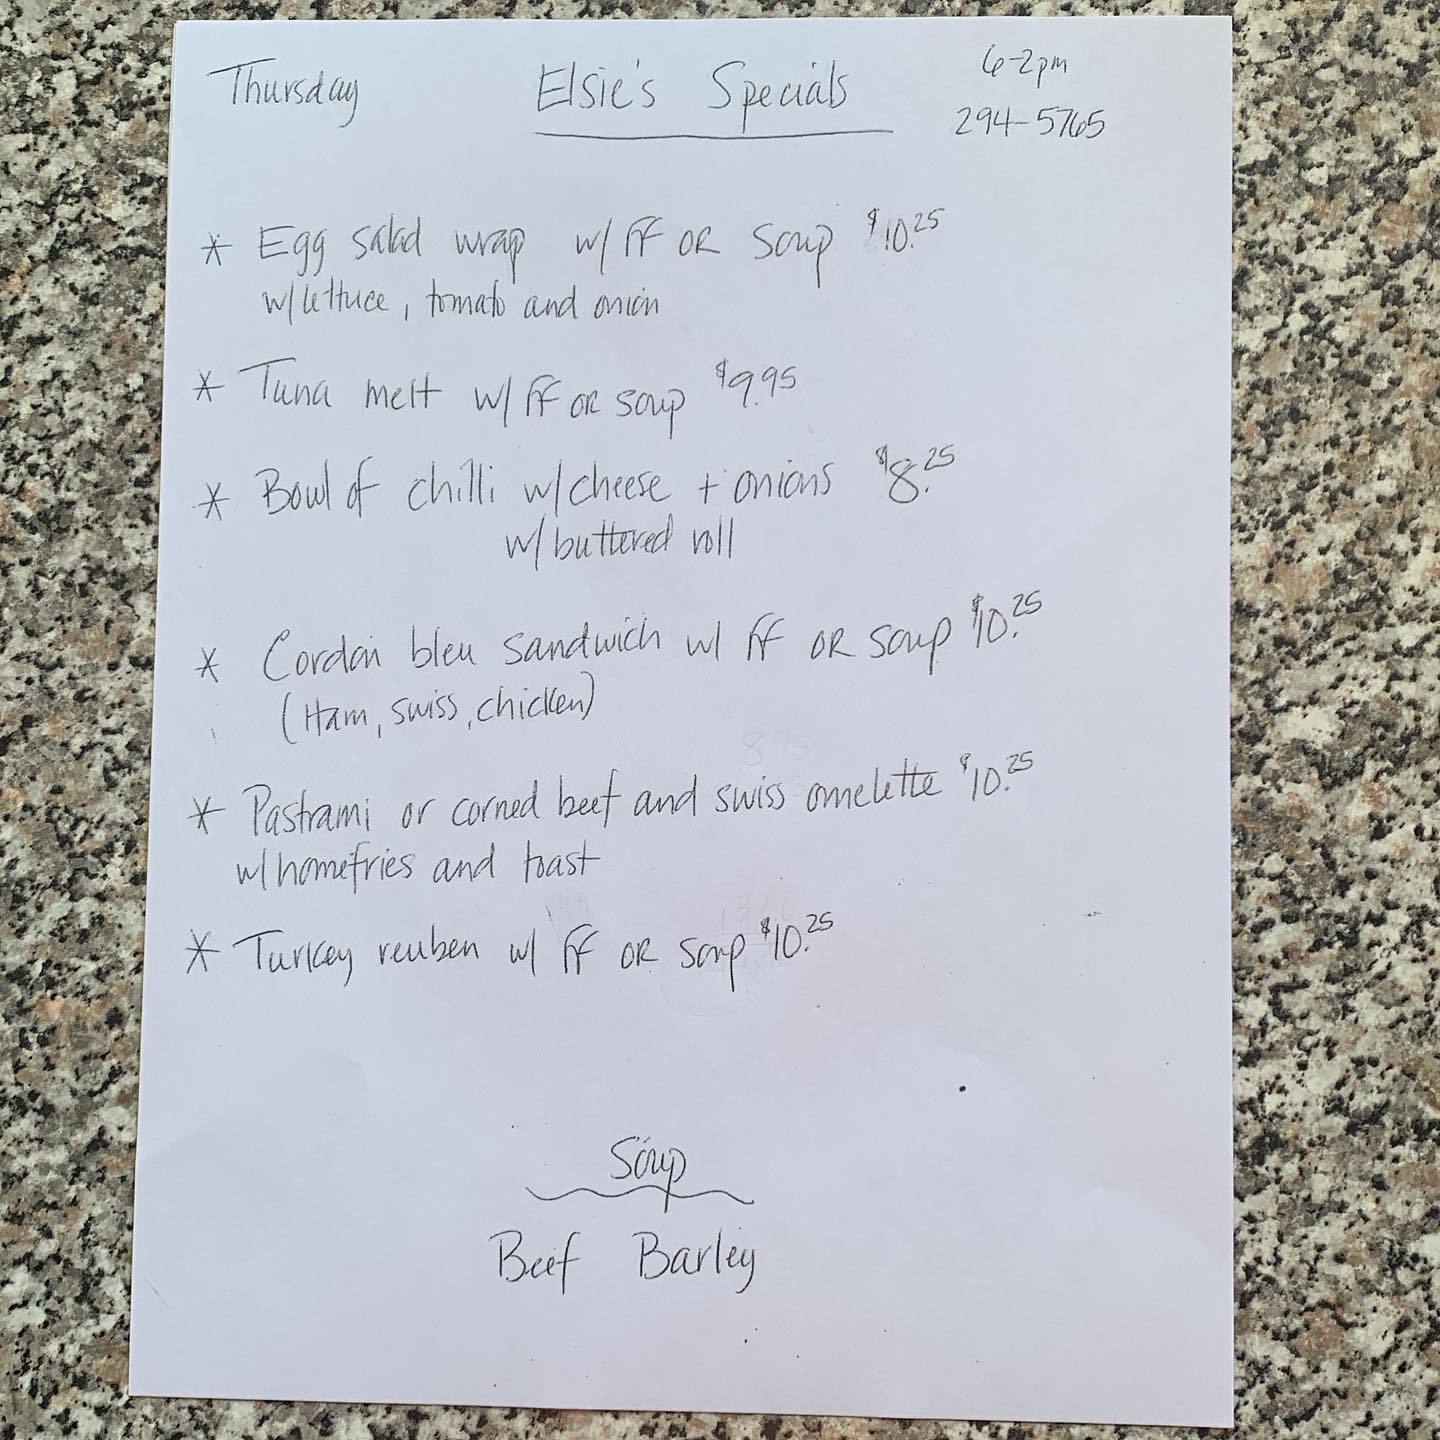 Thursday Elsie's Specials 6-2pm
294-5765
* Egg salad wrap w/ FF OR Soup $10.25
w/lettuce, tomato and onion
* Tuna melt w/ FF OR soup $9.95
* Bowl of chilli w/cheese + onions $8.25
w/ buttered roll
* Cordon bleu sandwich w/ FF OR soup $10.25
(Ham, swiss, chicken)
* Pastrami or corned beef and swiss omelette $10.25
w/homefries and toast
* Turkey reuben w/ FF OR soup $10.25
Soup
Beef Barley